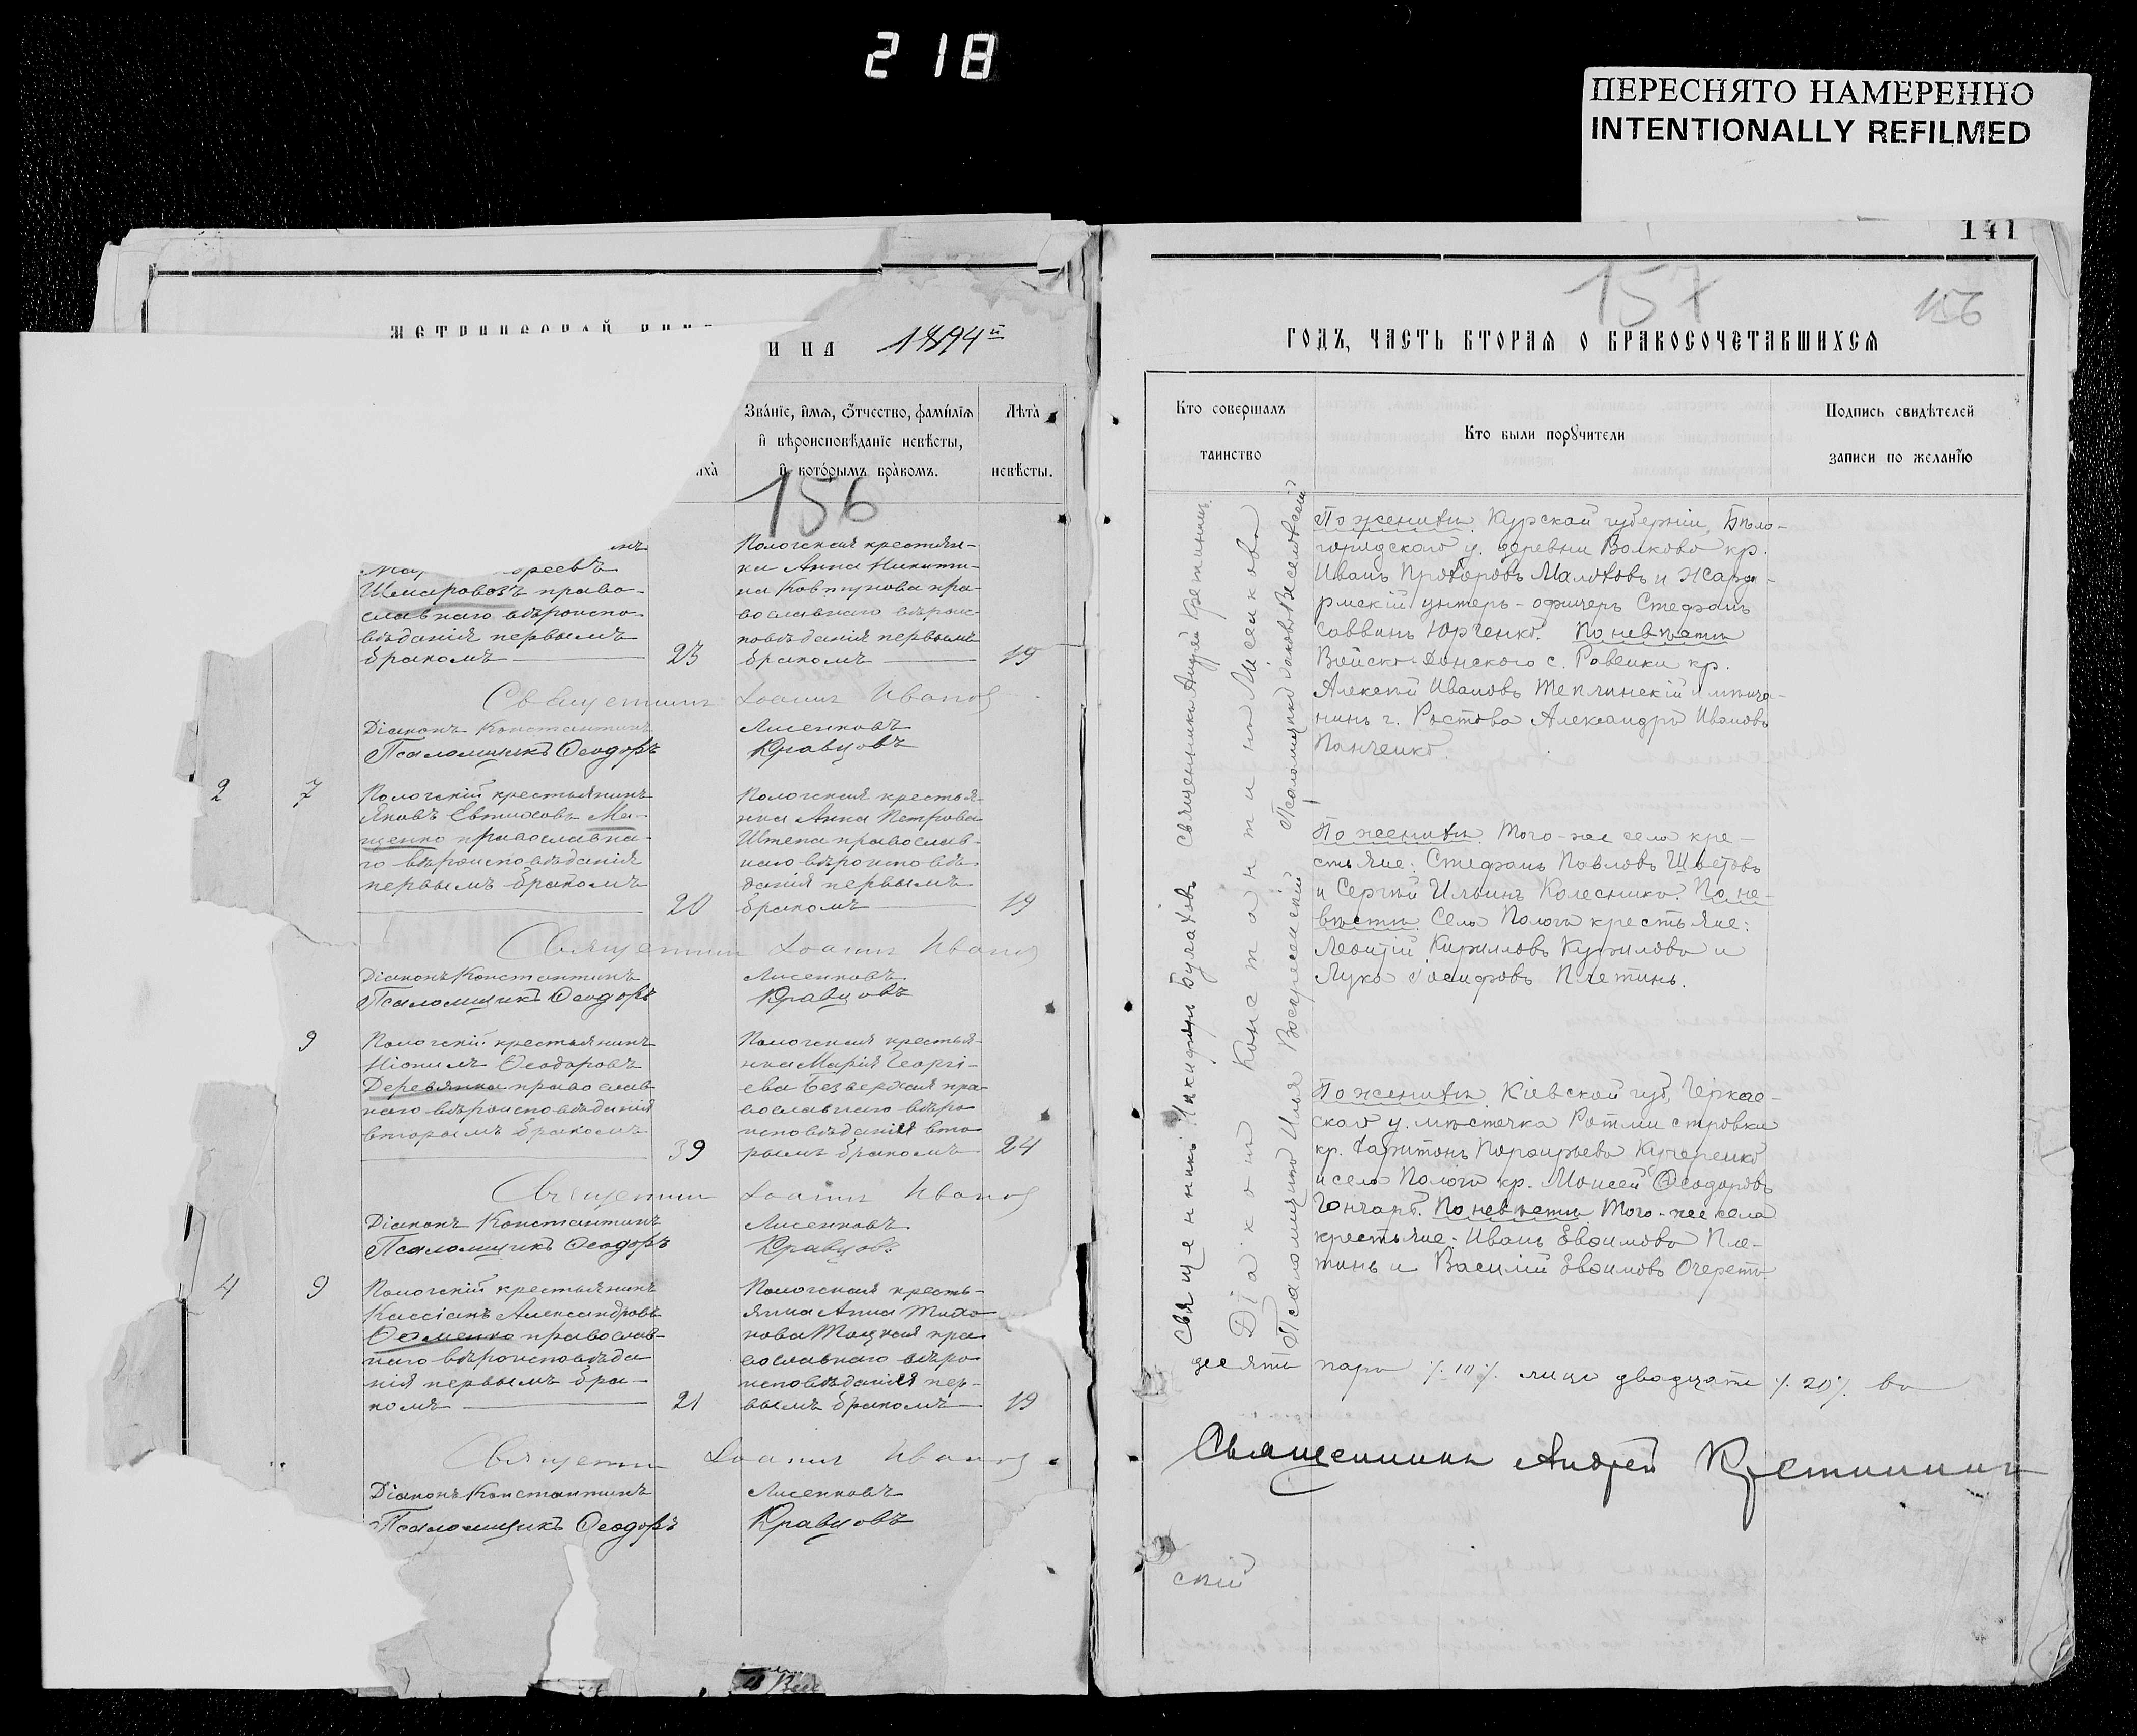 218
ПЕРЕСНЯТО НАМЕРЕННО
INTENTIONALLY REFILMED
И НА 1894й
Зва́нїе, и҆́мѧ, Ѻ҆́тчество, фамилїѧ
и҆ вѣроисповѣданїе невѣсты,
и҆ кото́рымъ бра́комъ.
Лѣта̀
невѣсты.
156
Шемаровъ право-
славнаго вѣроиспо-
вѣданія первымъ
бракомъ
23
Пологская крестьян-
ка Анна Никити-
на Ковтунова пра-
вославнаго вѣроис-
повѣданія первымъ
бракомъ
19
Священникъ Іоаннъ Ивановъ
Діаконъ Константинъ Лисенковъ
Псаломщикъ Ѳеодоръ Кравцовъ
2 7
Пологскій крестьянинъ
Яковъ Евтиховъ Ма-
щенко православна-
го вѣроисповѣданія
первымъ бракомъ
20
Пологская крестья-
нка Анна Петрова
Штепа православ-
наго вѣроисповѣ-
данія первымъ
бракомъ
19
Священник Іоаннъ Ивановъ
Діаконъ Константинъ Лисенковъ
Псаломщикъ Ѳеодоръ Кравцовъ
9
Пологскій крестьянинъ
Ѳеодоровъ
Деревянко православ-
наго вѣроисповѣданія
вторымъ бракомъ
39
Пологская крестья-
нка Марія Георгі-
ева Безверхая пра-
вославнаго вѣро
исповѣданія вто
рымъ бракомъ
24
Священник Іоаннъ Ивановъ
Діаконъ Константинъ Лисенковъ
Псаломщикъ Ѳеодоръ Кравцовъ
4 9
Пологскій крестьянинъ
Кассіанъ Александровъ
Ѳоменко православ-
наго вѣроисповѣда
нія первымъ бра-
комъ
21
Пологская кресть-
янка Анна Тихо
нова Тоцкая пра
вославнаго вѣро
исповѣданія пер-
вымъ бракомъ
19
Священ Іоаннъ Ивановъ
Діаконъ Константинъ Лисенковъ
Псаломщикъ Ѳеодоръ Кравцовъ
141
157
156
ГОДЪ, ЧАСТЬ ВТОРАѦ О БРАКОСОЧЕТАВШИХСѦ
Кто совершалъ
таинство
Кто были порꙋчители
Подпись свидѣтелей
записи по желанїю
Священникъ Никифоръ Булаховъ Священникъ Андрей Крестининъ
Діаконъ Константинъ Лисенковъ
Псаломщикъ Илья Воскресенскій Псаломщикъ Яковъ Веселовскій
По женихѣ Курской губерніи, Бѣло-
городскаго у. деревни Волково кр.
Иванъ Прохоровъ Малоховъ и жанда-
рмскій унтеръ-офицеръ Стефанъ
Саввинъ Юрченко. По невѣстѣ
Войска Донскаго с. Ровенки кр.
Алексѣй Ивановъ Теплинскій и мѣща-
нинъ г. Ростова Александръ Ивановъ
Панченко.
По женихѣ Того-же села кре-
стьяне: Стефанъ Павловъ Шветовъ
и Сергѣй Ильинъ Колесникъ. По не-
вѣстѣ Села Пологъ крестьяне:
Леонтій Кирилловъ Куриловъ и
Лука Іосифовъ Плетинь.
По женихѣ Кіевской губ, Черкас-
скаго у. мѣстечка Ротмистровки
кр. Харитонъ Порфирьевъ Кучеренко
и села Пологи кр. Моисей Ѳеодоровъ
Гончаръ. По невѣстѣ Того-же села
крестьяне: Иванъ Евѳимовъ Пле-
тинь и Василій Евѳимовъ Очереть
десять паръ ⁒ 10 ⁒ лицъ двадцать ⁒ 20 ⁒ во
Священникъ Андрей Крестининъ
скій